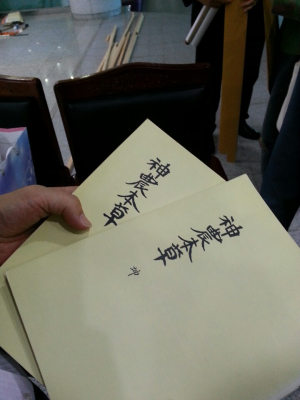 神農本草
神農本草